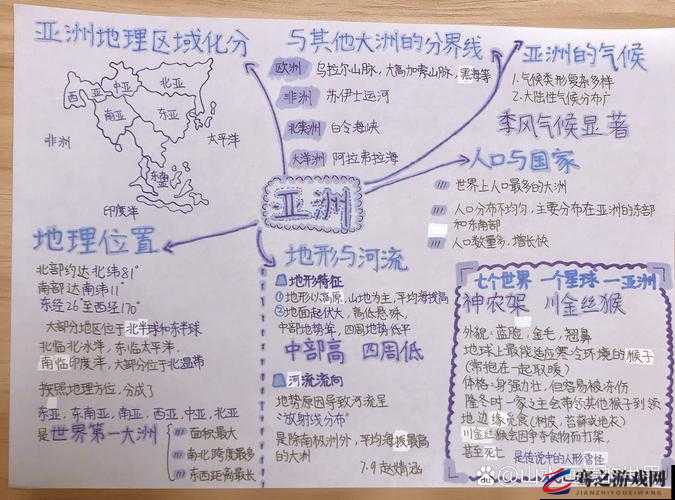 亚洲地理区域化分
北亚
中亚
西亚
东亚
南亚
东南亚
非洲
太平洋
印度洋
与其他大洲的分界线
欧洲 乌拉尔山脉，大高加索山脉，黑海等
非洲 苏伊士运河
北美洲 白令海峡
大洋洲 阿拉弗拉海
亚洲的气候
1.气候类形复杂多样
2.大陆性气候分布广
季风气候显著
人口与国家
世界上人口最多的大洲
人口分布不均匀，主要分布在亚洲的东部
和东南部
人口数量多，增长快
亚洲
地理位置
北部约达北纬81°
南部达南纬11°
东经26°至西经170°
大部分地区位于北半球和东半球
北临北冰洋，东临太平洋，
南临印度洋，大部分位于北温带
按照地理方位，分成了
东亚，东南亚，南亚，西亚，中亚，北亚
是世界第一大洲
面积最大
南北跨度最多
东西距离最长
地形与河流
地形特征
①地形以高原，山地为主，平均海拔高
②地面起伏大，高低悬殊，
中部地势高，四周地势低平
中部高 四周低
河流流向
地势原因导致河流呈
"放射线分布"
是除南极洲外，平均海拔最高
的大洲
7.9 赵
七个世界 一个星球 一亚洲
神农架 川金丝猴
外貌：蓝脸，金毛，翘鼻
地球上最能适应寒冷环境的猴子
（常抱在一起取暖）
体格：身强力壮，但容易被冻伤
隆冬时一家之主会带领其他猴子到领
地边缘觅食（树皮，苔藓或地衣）
川金丝猴会因争夺食物而打架，
甚至死亡 是传说中的人形雪怪
骞之游戏网
JIANZHIYOUXIWANG